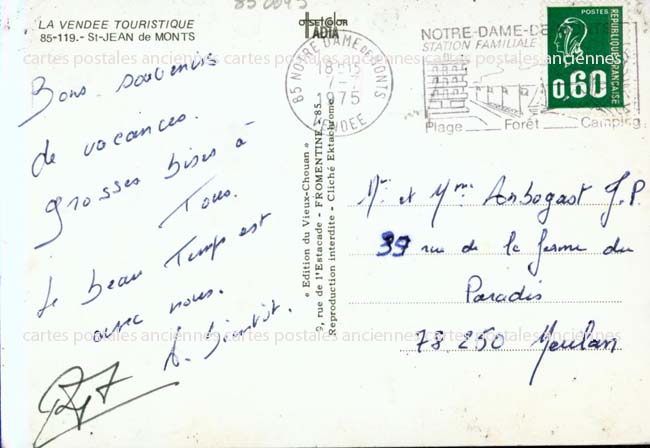 LA VENDEE TOURISTIQUE
85-119.- St-JEAN de MONTS
Bons souvenirs
de vacances.
Grosses bises à
Tous.
Le beau Temps est
avec nous.
A. bientôt.
85 NOTRE DAME DE MONTS
18-
1975
VENDEE
NOTRE-DAME-DE
STATION FAMILIALE
Plage Forêt Camping
POSTES
REPUBLIQUE FRANÇAISE
0,60
« Edition du Vieux-Chouan »
9, rue de l'Estacade - FROMENTINE - 85
Reproduction interdite - Cliché Ektachrome
Mr et Mme Arbogast J.P
39 rue de la ferme du
Paradis
78250 Meulan
cartes postales anciennes cartes postales anciennes cartes postales anciennes
cartes postales anciennes cartes postales anciennes cartes postales anciennes